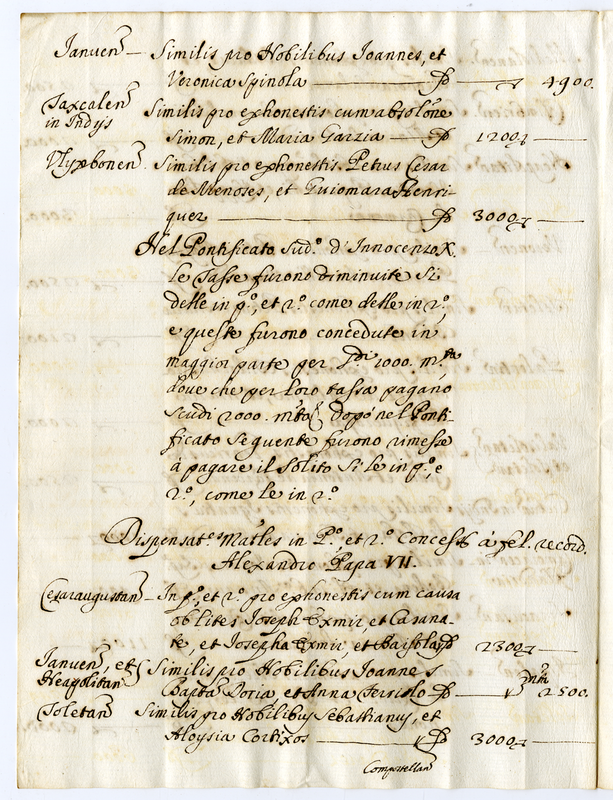 Januen — Similis pro Nobilibus Joannes, et
Veronica Spinola — 4900.
Taxcalen
in Indijs
Similis pro exhonestis cum absolõne
Simon, et Maria Garzia — 1200
Vlyxbonen Similis pro exhonestis Petrus Cesar
de Menoses, et Guiomara Henri-
quez — 3000
Nel Pontificato sud.º d'Innocenzo X.
le Tasse furono diminuite si
delle in p.º, et 2.º come delle in 2.º,
e queste furono concedute in
maggior parte per 1000. m.ta
dove che per loro tassa pagano
scudi 2000. mta dopò nel Ponti-
ficato seguente furono rimesse
à pagare il solito si le in p.º, e
2.º, come le in 2.º
Dispensat.s Matles in P.º, et 2.º Concess à fel. record.
Alexandro Papa VII.
Cesaraugustan — In p.º, et 2.º pro exhonestis cum causa
ob lites Joseph Exmir, et Casana-
te, et Josepha Exmir, et 2300
Januen, et
Neapolitan
Similis pro Nobilibus Joannes
Bapta Doria, et Anna — 2500.
Toletan Similis pro Nobilibus Sebastianus, et
Aloysia Cortixos — 3000
Compostellan